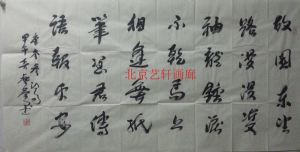 故園東望
路漫漫雙
袖龍鍾淚
不乾馬上
相逢無紙
筆憑君傳
語報平安
北京艺轩画廊